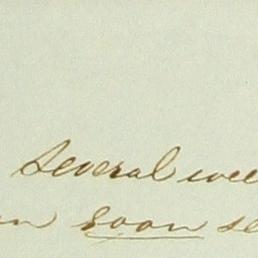 Several wee
n soon se